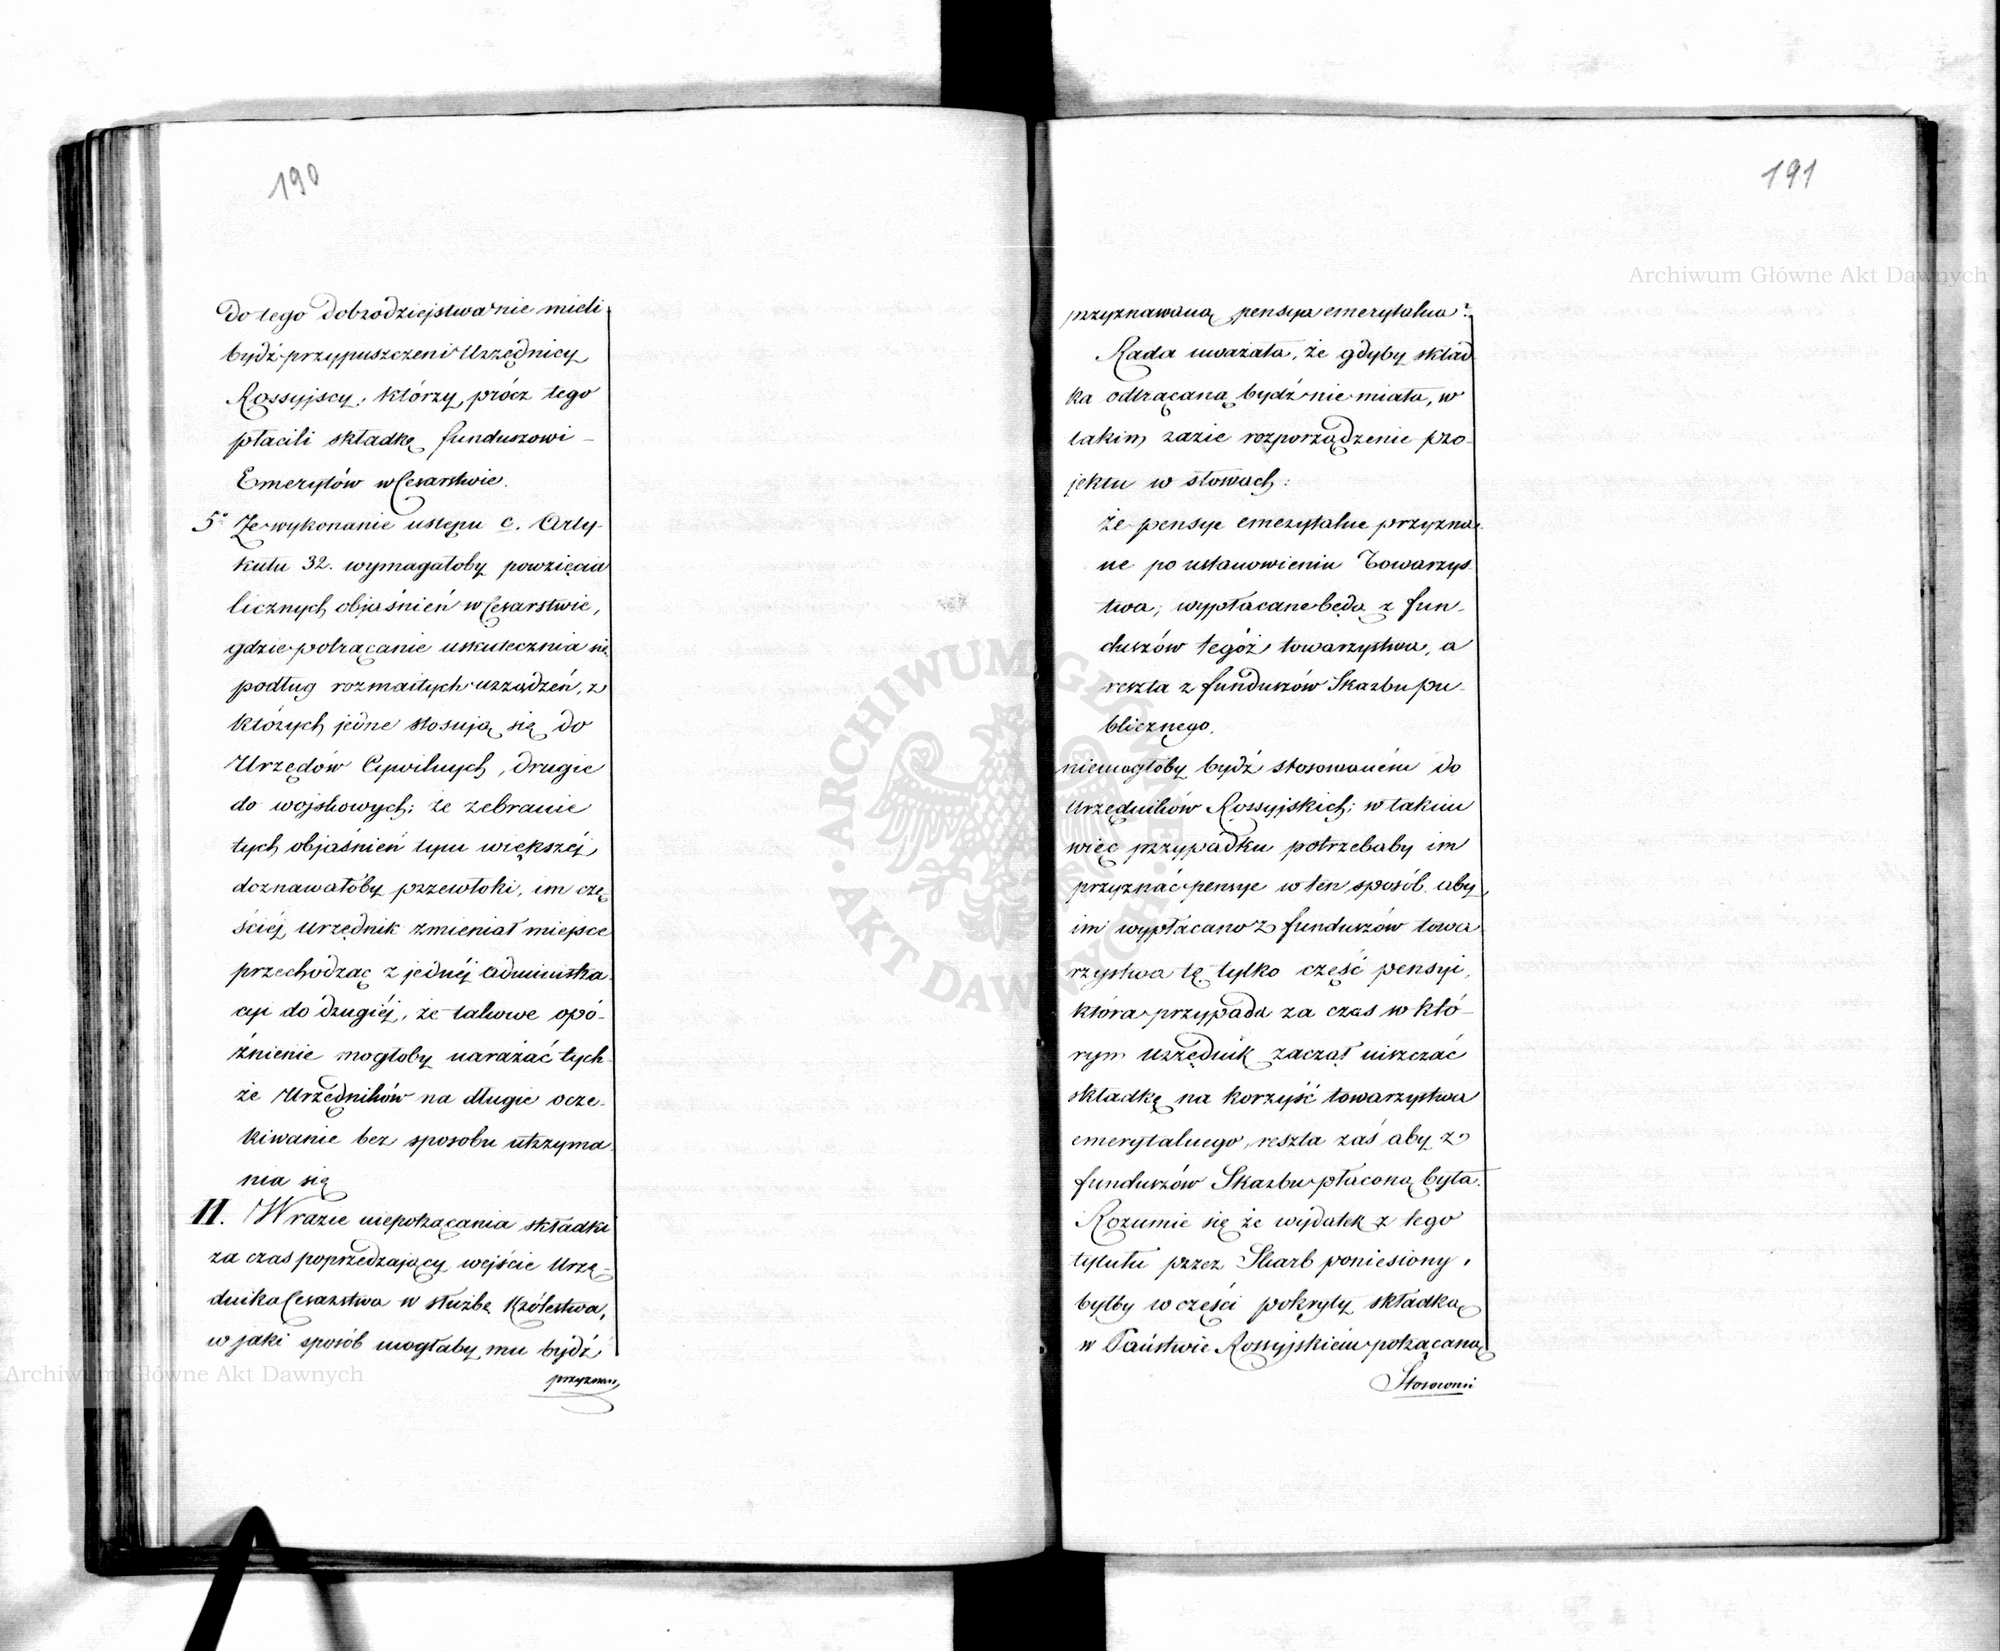 190
do tego dobrodziejstwa nie mieli
bydź przypuszczeni Urzędnicy
Rossyjscy, którzy prócz tego
płacili składkę funduszowi
Emerytów w Cesarstwie.
5° Że wykonanie ustępu c. Arty-
kułu 32. wymagałoby powzięcia
licznych objaśnień w Cesarstwie,
gdzie potrącanie uskutecznia się
podług rozmaitych urządzeń, z
których jedne stosują się do
Urzędów Cywilnych, drugie
do wojskowych; że zebranie
tych objaśnień tym większéj
doznawałoby przewłoki, im czę-
ściéj Urzędnik zmieniał miejsce
przechodząc z jednéj administra-
cyi do drugiéj, że takowe opó-
źnienie mogłoby narażać tych-
że Urzędników na długie ocze-
kiwanie bez sposobu utrzyma-
nia się
II. W razie niepotrącania składki
za czas poprzedzający wejście Urzę-
dnika Cesarstwa w służbę Królestwa,
w jaki sposób mogłaby mu bydź
przyznaw
191
przyznawaną pensya emerytalna?
Rada uważała, że gdyby skład-
ka odtrącaną bydź nie miała, w
takim razie rozporządzenie pro-
jektu w słowach:
że pensye emerytalne przyzna-
ne po ustanowieniu Towarzys-
twa, wypłacane będą z fun-
duszów tegóż towarzystwa, a
reszta z funduszów Skarbu pu-
blicznego,
niemogłoby bydź stosowaném do
Urzędników Rossyjskich; w takim
więc przypadku potrzebaby im
przyznać pensye w ten sposób, aby
im wypłacano z funduszów towa-
rzystwa tę tylko część pensyi,
która przypada za czas w któ-
rym urzędnik zaczął uiszczać
składkę na korzyść towarzystwa
emerytalnego, reszta zaś aby z
funduszów Skarbu płaconą była.
Rozumie się że wydatek z tego
tytułu przez Skarb poniesiony,
byłby w części pokryty składką
w Państwie Rossyjskiém potrącaną
Stosownie
Archiwum Główne Akt Dawnych
Archiwum Główne Akt Dawnych
ARCHIWUM GŁÓWNE · AKT DAWNYCH ·